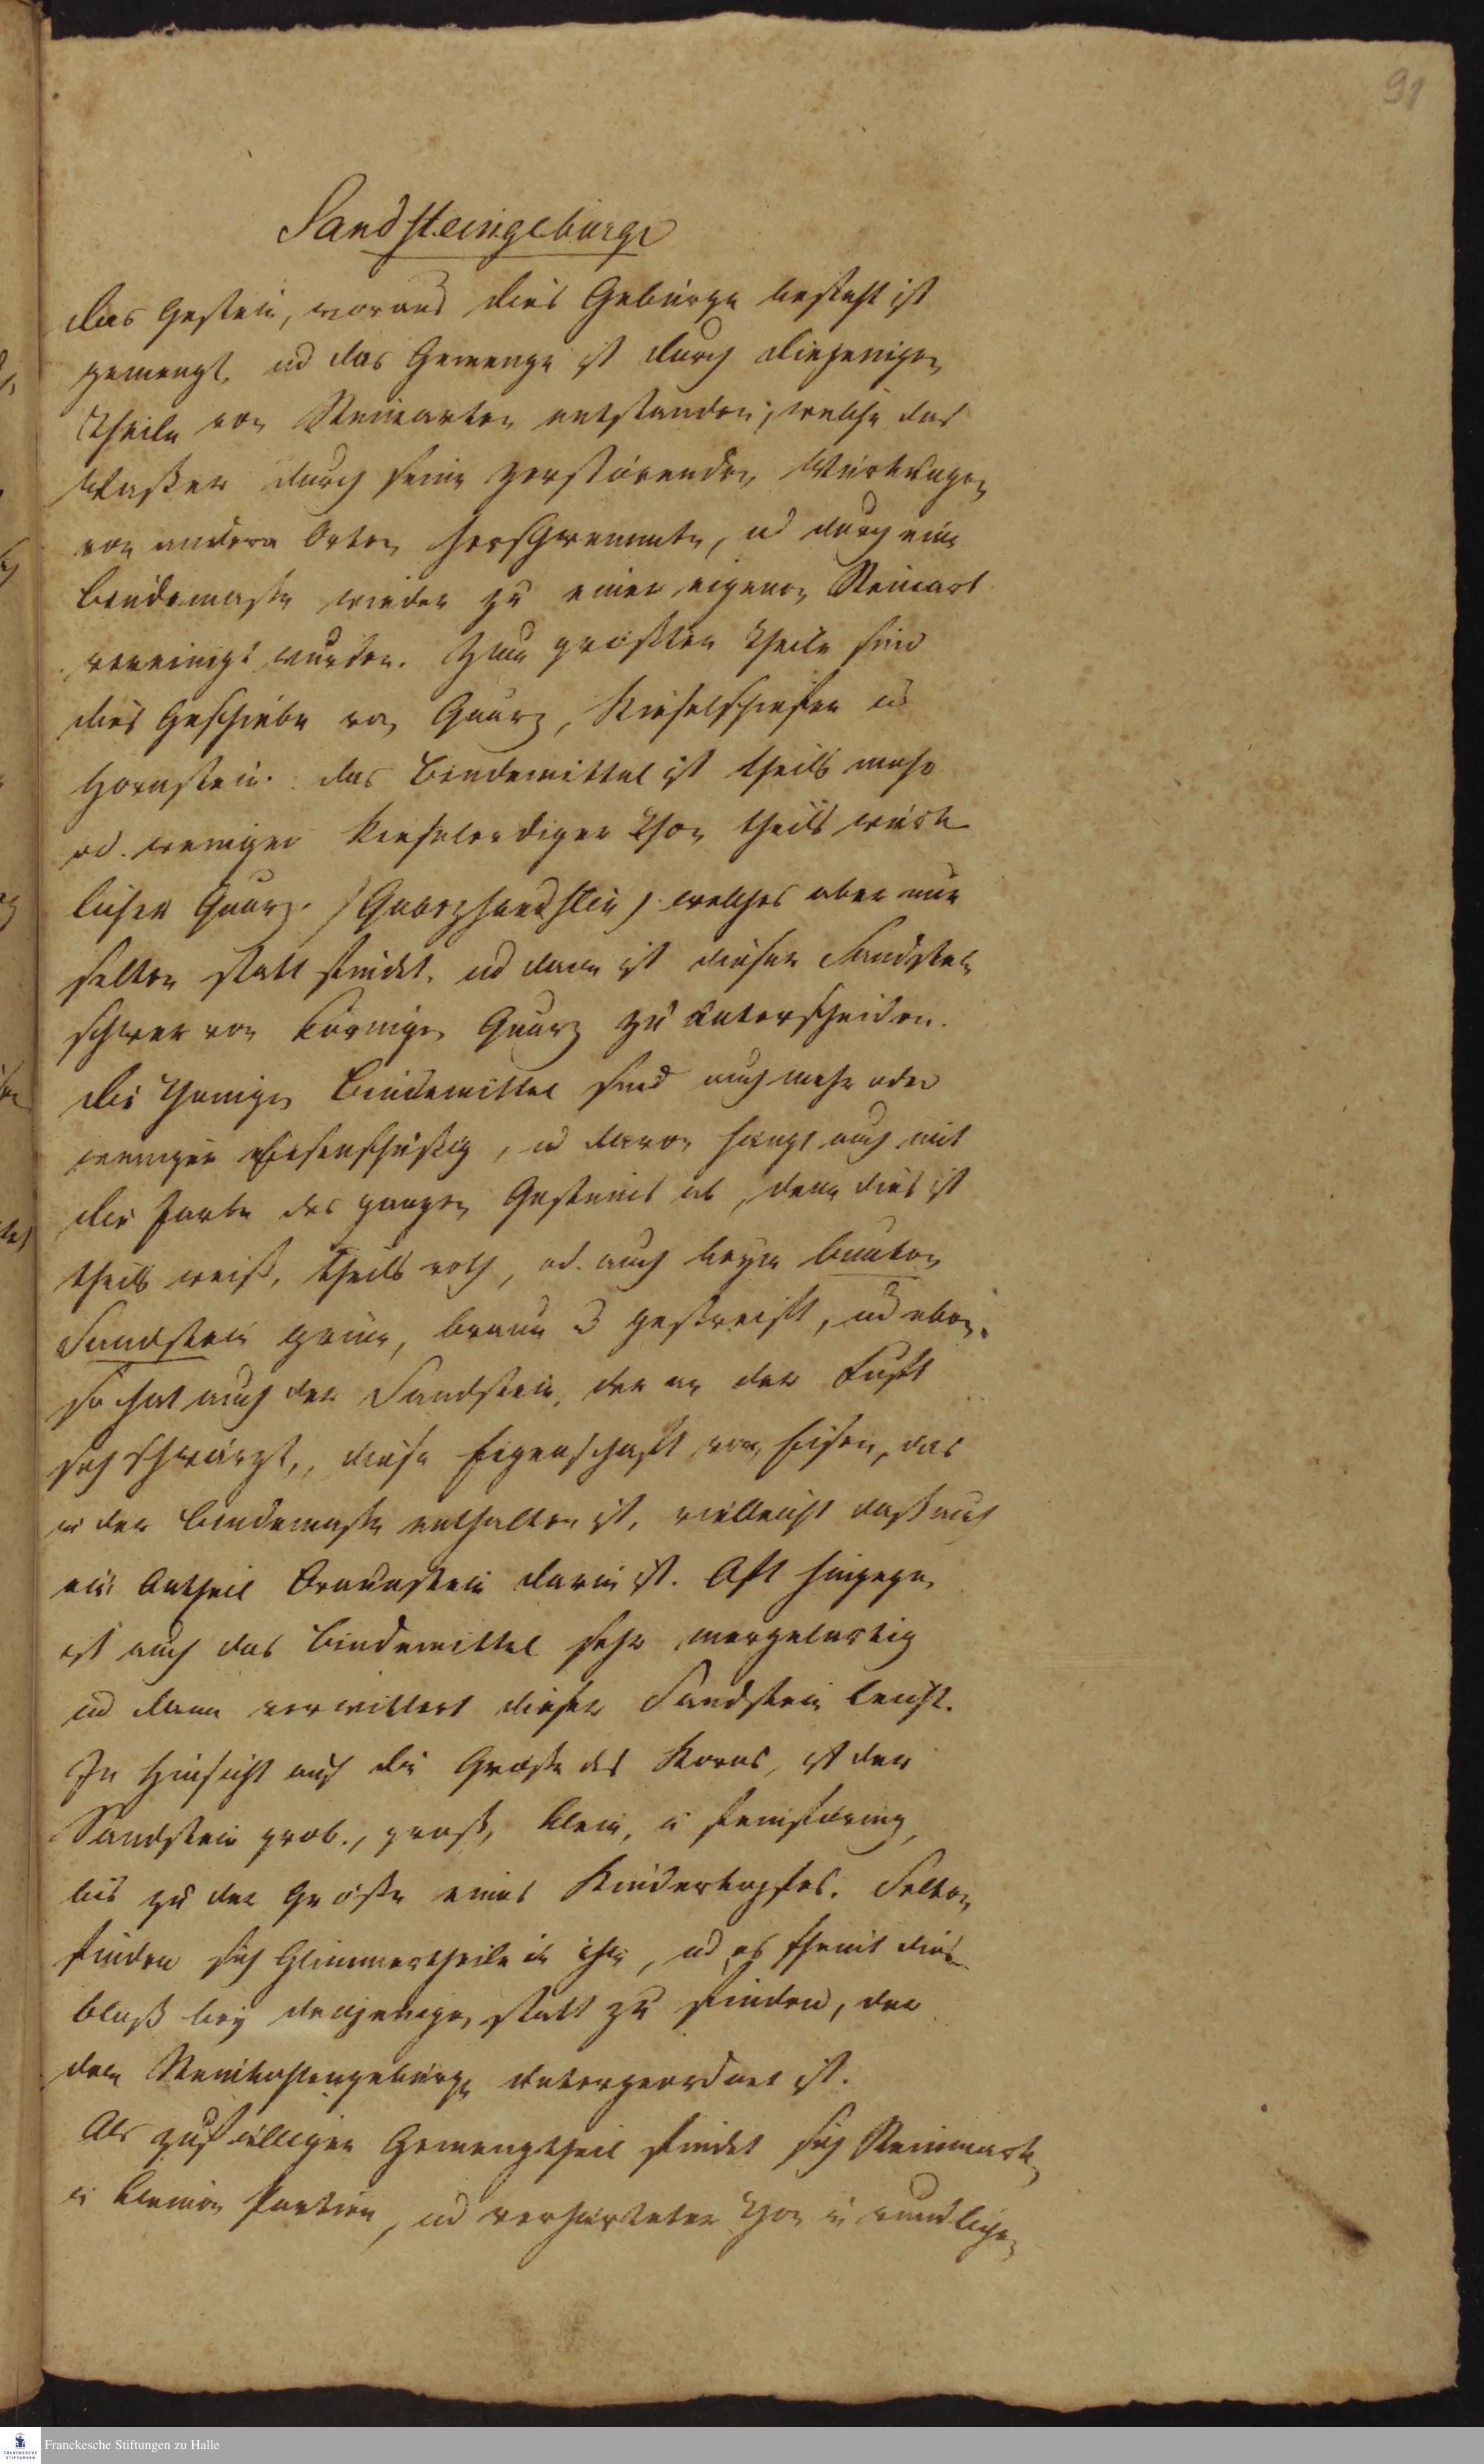 91
Sandsteingebürge
Das Gestein, woraus dies Gebürge besteht ist
gemengt, ud das Gemenge ist durch diejenigen
Theile von Steinarten entstanden, welche das
Waßer durch seine zerstörenden Würkungen
von andern Orten herschwemmte, ud durch eine
Bindemaße wieder zu einer eigenen Steinart
vereinigt wurden. Zum größten Theile sind
dies Geschiebe von Quarz, Kieselschiefer u
Hornstein. das Bindemittel ist theils mehr
od. weniger kieselerdiger Thon theils würk
licher Quarz. (Quarzsandstein) welches aber nur
selten statt findet, ud dann ist dieser Sandstein
schwer von körnigen Quarz zu unterscheiden.
Die thonigen Bindemittel sind auch mehr oder
weniger eisenschüßig, u davon hängt auch mit
die Farbe des ganzen Gesteins ab, denn dies ist
theils weiß, theils roth, od. auch beym bunten
Sandstein grün, braun gestreift, ud eben
so hat auch der Sandstein, der an der Luft
sich schwärzt, diese Eigenschaft vom Eisen, das
in der Bindemaße enthalten ist, vielleicht daß auch
ein Antheil Braunstein darin ist. Oft hingegen
ist auch das Bindemittel sehr mergelartig
ud dann verwittert dieser Sandstein leicht.
In Hinsicht auf die Größe des Korns, ist der
Sandstein grob., groß, klein, u feinkörnig,
bis zu der Größe eines Kinderkopfes. Selten
finden sich Glimmertheile in ihm, ud es scheint dies
bloß bey denjenigen statt zu finden, der
dem Steinkohlengebürge untergeordnet ist.
Als zufälliger Gemengtheil findet sich Steinmark
in kleinen Partien, ud verhärteter Thon in rundlichen
Franckesche Stiftungen zu Halle